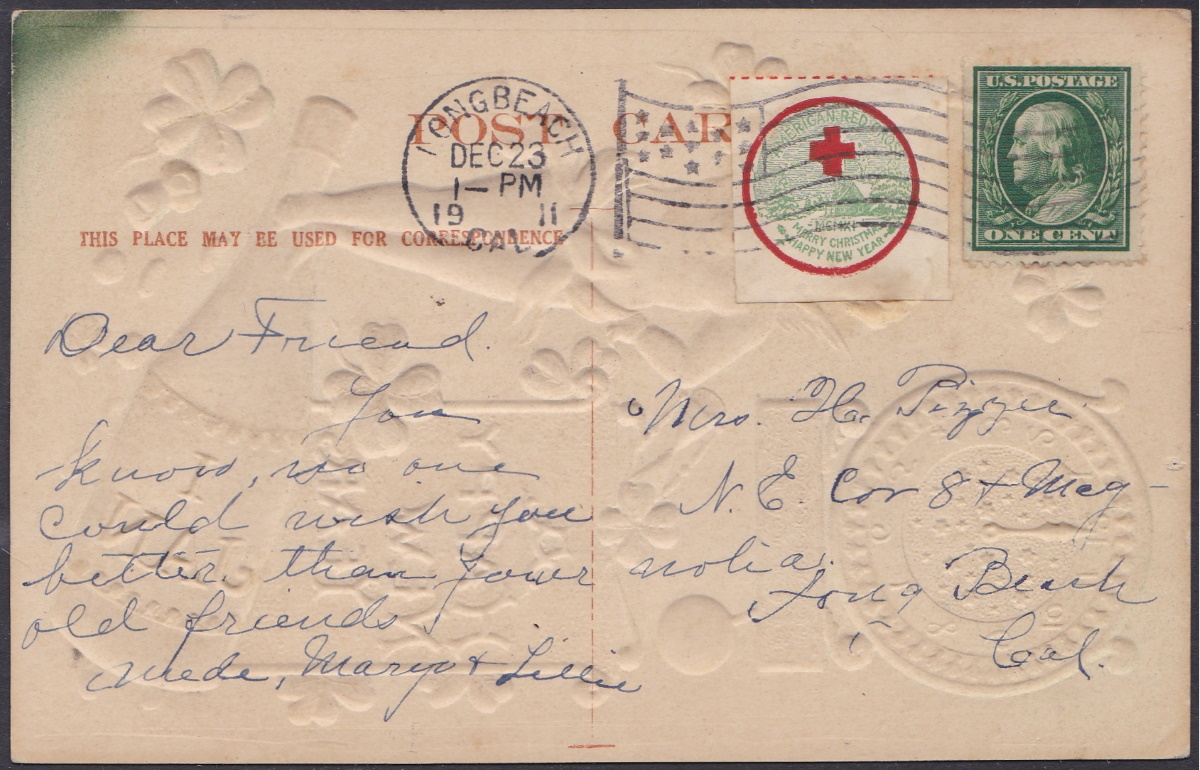 POST CAR
LONGBEACH
DEC 23
1 — PM
19 11
CAL.
AMERICAN RED CROSS
MERRY CHRISTMAS
HAPPY NEW YEAR
U.S. POSTAGE
ONE CENT
THIS PLACE MAY BE USED FOR CORRESPONDENCE
Dear Friend.
You
know, no one
could wish you
better than your
old friends
Mede, Mary & Lillie
Mrs. H. Pizzie
N.E. Cor 8 & Mag-
nolia.
Long Beach
Cal.